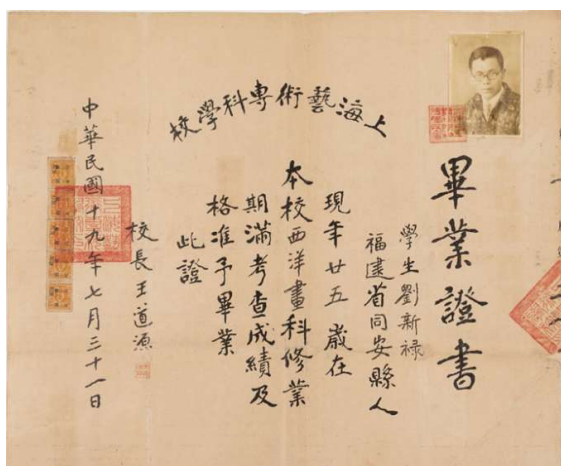 上海藝術專科學校
畢業證書
學生劉新禄
福建省同安縣人
現年廿五歲在
本校西洋畫科修業
期滿考查成績及
格准予畢業
此證
校長王道源
中華民國十九年七月三十一日